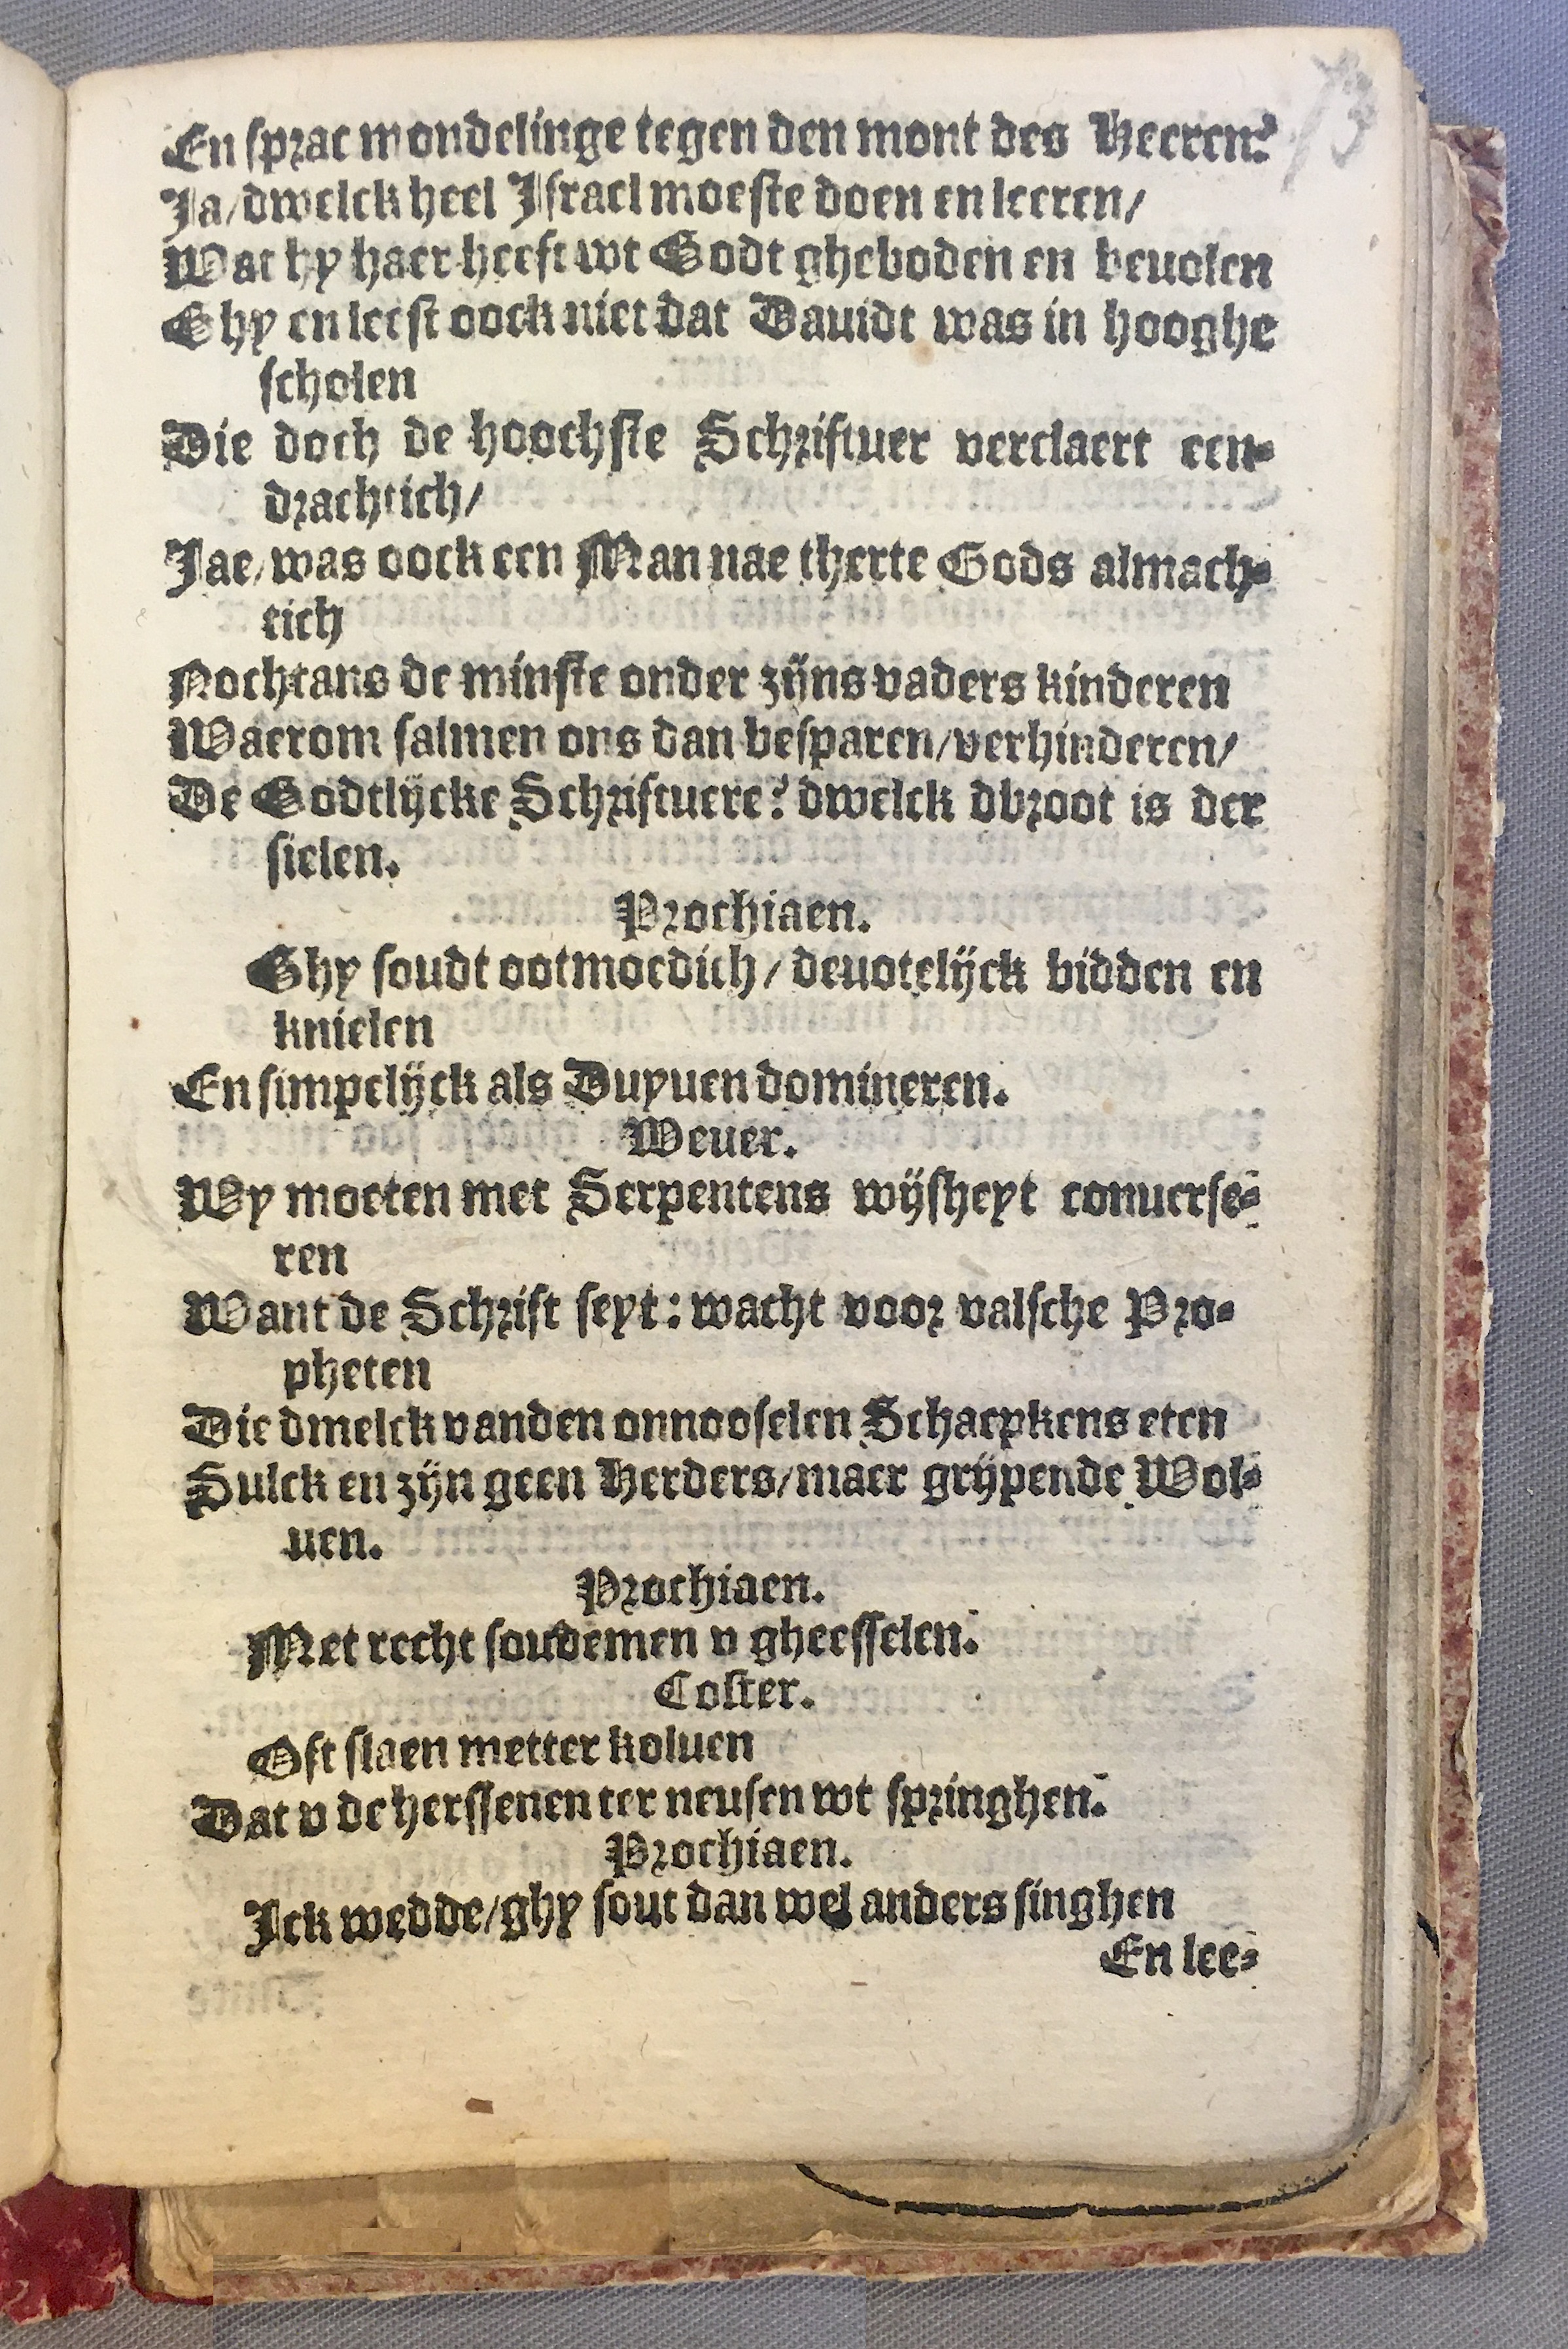 13
En sprac mondelinge tegen den mont des Heeren?
Ja/dwelck heel Israel moeste doen en leeren/
Wat hy haer heeft wt Godt gheboden en beuolen
Ghy en leest oock niet dat Dauidt was in hooghe
scholen
Die doch de hoochste Schriftuer verclaert een-
drachtich/
Jae/was oock een Man nae therte Gods almach-
tich
Nochtans de minste onder zijns vaders kinderen
Waerom salmen ons dan besparen/verhinderen/
De Godtlijcke Schriftuere? dwelck dbroot is der
sielen.
Prochiaen.
Ghy soudt ootmoedich/deuotelijck bidden en
knielen
En simpelijck als Duyuen domineren.
Weuer.
Wy moeten met Serpentens wijsheyt conuerse-
ren
Want de Schrift seyt: wacht voor valsche Pro-
pheten
Die dmelck vanden onnooselen Schaepkens eten
Sulck en zijn geen Herders/maer grijpende Wol-
uen.
Prochiaen.
Met recht soudemen v gheesselen.
Coster.
Oft slaen metter koluen
Dat v de herssenen ter neusen wt springhen.
Prochiaen.
Ick wedde/ghy sout dan wel anders singhen
En lee-